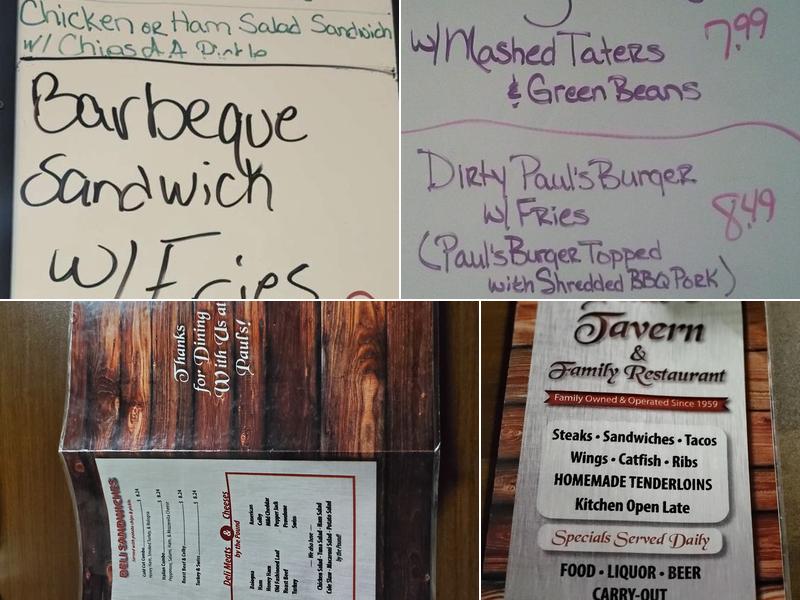 Chicken or Ham Salad Sandwich
w/ Chips & A
Barbeque
Sandwich
w/ Fries
w/ Mashed Taters
& Green Beans
7.99
Dirty Paul's Burger
w/ Fries
8.49
(Paul's Burger Topped
with Shredded BBQ Pork)
Thanks
for Dining
With Us at
Paul's!
DELI SANDWICHES
Served with potato chips & pickle
Cold Cut Combo $ 8.24
Honey Ham, Smoked Turkey, & Bologna
Italian Combo $ 8.24
Pepperoni, Salami, Ham, & Mozzarella Cheese
Roast Beef & Colby $ 8.24
Turkey & Swiss $ 8.24
Deli Meats & Cheeses
by the Pound
Bologna
Ham
Honey Ham
Old Fashioned Loaf
Roast Beef
Turkey
American
Colby
Mild Cheddar
Pepper Jack
Provolone
Swiss
We also have
Chicken Salad • Tuna Salad • Ham Salad
Cole Slaw • Macaroni Salad • Potato Salad
by the Pound!
Tavern
&
Family Restaurant
Family Owned & Operated Since 1959
Steaks • Sandwiches • Tacos
Wings • Catfish • Ribs
HOMEMADE TENDERLOINS
Kitchen Open Late
Specials Served Daily
FOOD • LIQUOR • BEER
CARRY-OUT